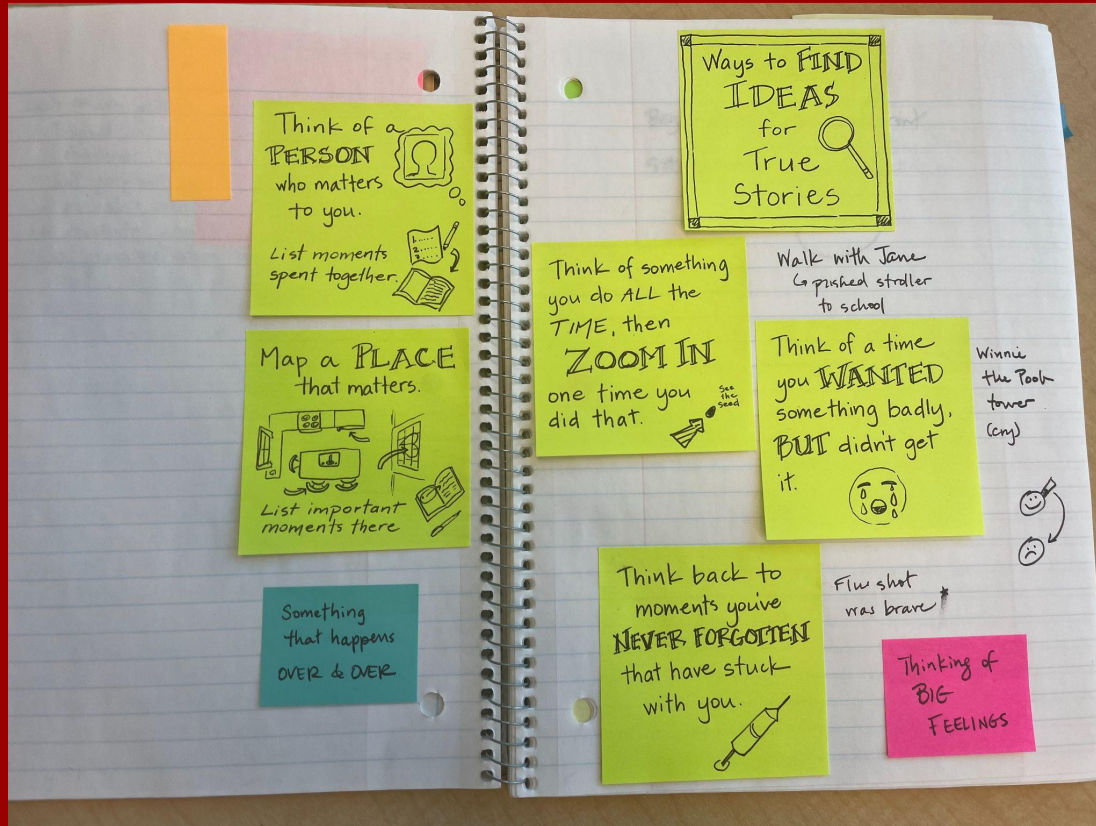 Think of a
PERSON
who matters
to you.
List moments
spent together.
Map a PLACE
that matters.
List important
moments there
Something
that happens
OVER & OVER
Ways to FIND
IDEAS
for
True
Stories
Think of something
you do ALL the
TIME, then
ZOOM IN
one time you
did that.
see
the
seed
Walk with Jane
↳ pushed stroller
to school
Think of a time
you WANTED
something badly,
BUT didn't get
it.
Winnie
the Pooh
tower
(cry)
Think back to
moments you've
NEVER FORGOTTEN
that have stuck
with you.
Flu shot
was brave
Thinking of
BIG
FEELINGS